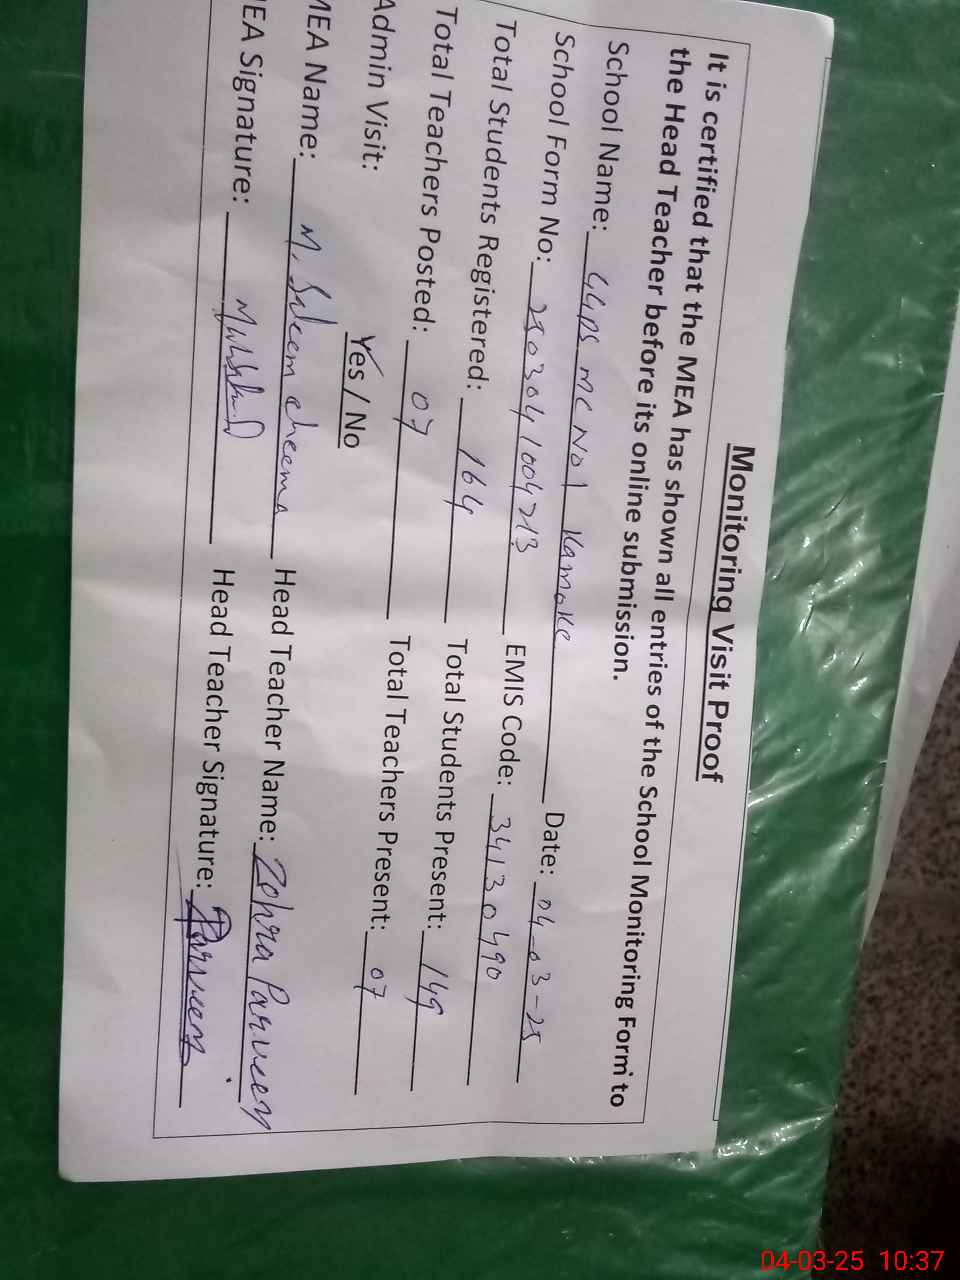 Monitoring Visit Proof
It is certified that the MEA has shown all entries of the School Monitoring Form to
the Head Teacher before its online submission.
School Name: GGPS MC NO 1 Kamoke Date: 04-03-25
School Form No: 2503041004213 EMIS Code: 34130490
Total Students Registered: 164 Total Students Present: 149
Total Teachers Posted: 07 Total Teachers Present: 07
Admin Visit: Yes / No
MEA Name: M. Saleem cheema Head Teacher Name: Zohra Parveen
EA Signature: Head Teacher Signature: Parveen
04-03-25 10:37